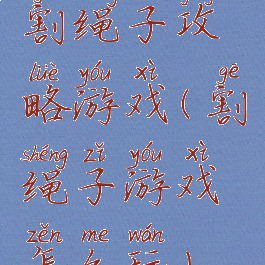 割绳子攻
lüè yóu xì gē
略游戏(割
shéng zǐ yóu xì
绳子游戏
zěn me wán
怎么玩)